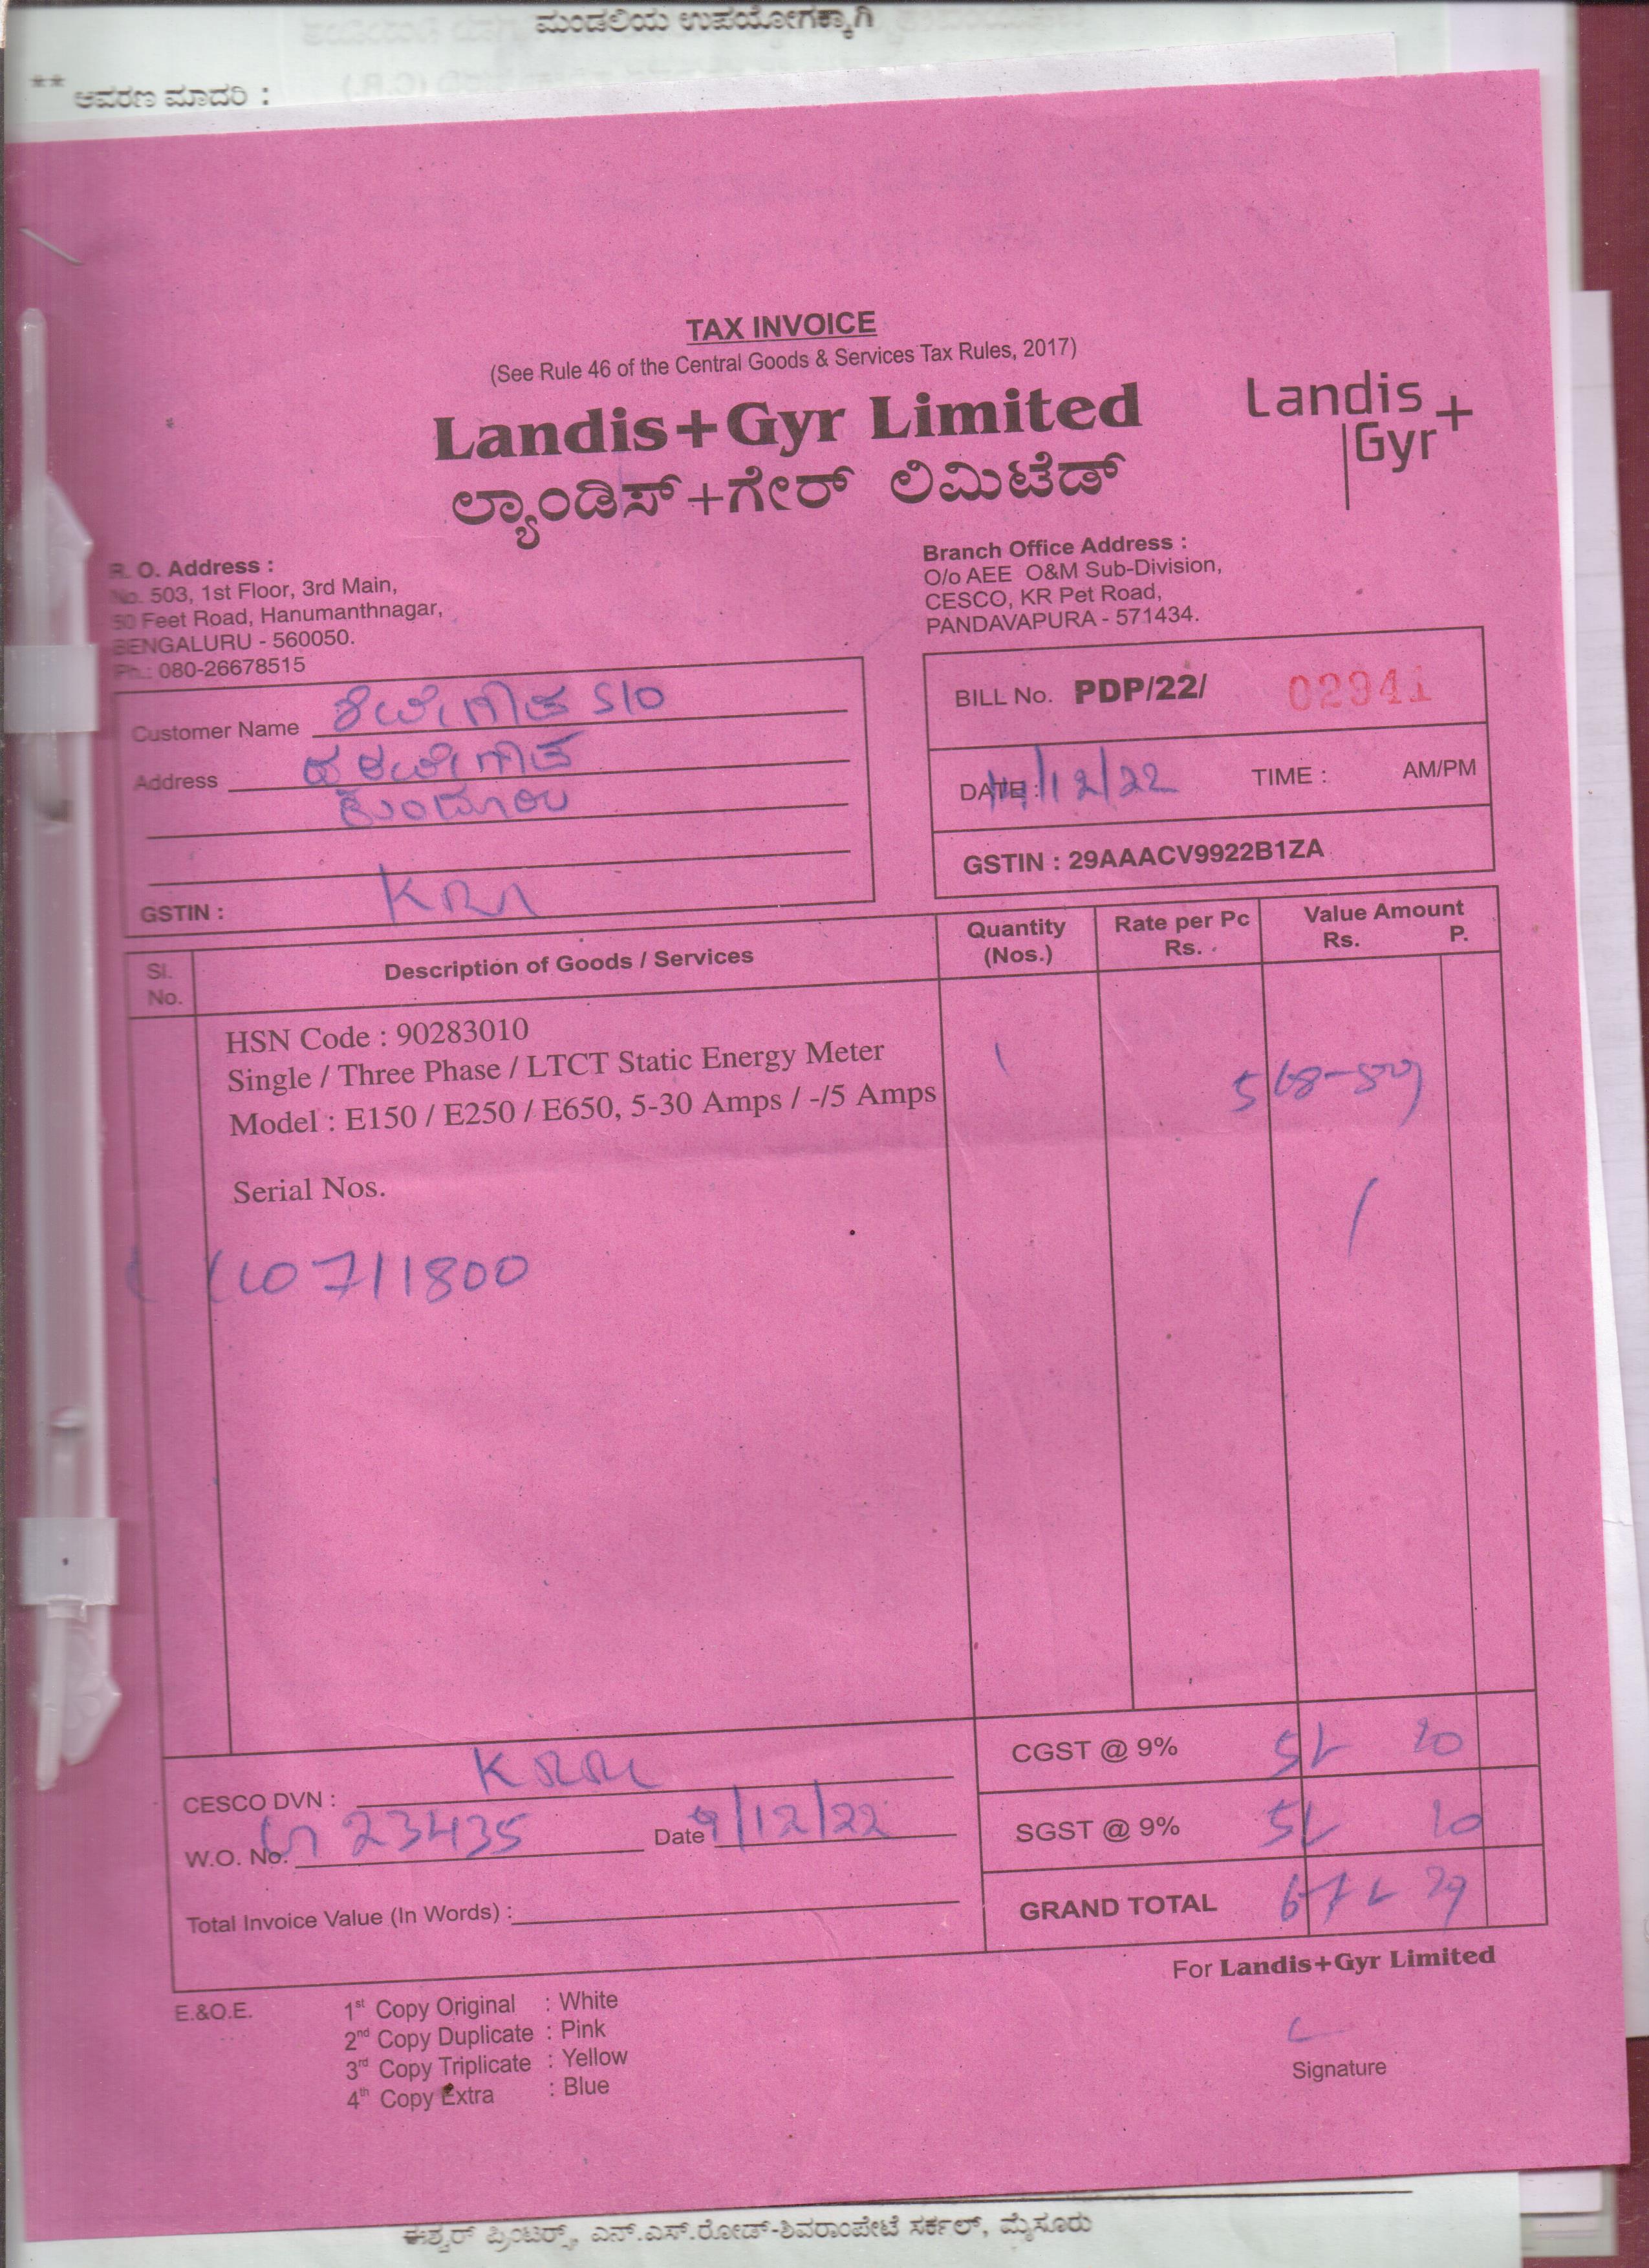 ಮಂಡಲಿಯ ಉಪಯೋಗಕ್ಕಾಗಿ
** ಆವರಣ ಮಾದರಿ :
TAX INVOICE
(See Rule 46 of the Central Goods & Services Tax Rules, 2017)
Landis+Gyr Limited
Landis
Gyr+
ಲ್ಯಾಂಡಿಸ್+ಗೇರ್ ಲಿಮಿಟೆಡ್
R. O. Address :
No. 503, 1st Floor, 3rd Main,
50 Feet Road, Hanumanthnagar,
BENGALURU - 560050.
Ph.: 080-26678515
Branch Office Address :
O/o AEE O&M Sub-Division,
CESCO, KR Pet Road,
PANDAVAPURA - 571434.
Customer Name S/O
Address
GSTIN :
BILL No. PDP/22/ 02941
DATE : 14/12/22 TIME : AM/PM
GSTIN : 29AAACV9922B1ZA
Sl. No. Description of Goods / Services Quantity (Nos.) Rate per Pc Rs. Value Amount Rs. P.
HSN Code : 90283010
Single / Three Phase / LTCT Static Energy Meter 1
Model : E150 / E250 / E650, 5-30 Amps / -/5 Amps
Serial Nos.
CGST @ 9%
CESCO DVN :
SGST @ 9%
W.O. No. 23435 Date 9/12/22
GRAND TOTAL
Total Invoice Value (In Words) :
For Landis+Gyr Limited
E.&O.E.
1st Copy Original : White
2nd Copy Duplicate : Pink
3rd Copy Triplicate : Yellow
4th Copy Extra : Blue
Signature
ಈಶ್ವರ್ ಪ್ರಿಂಟರ್ಸ್, ಎನ್.ಎಸ್.ರೋಡ್-ಶಿವರಾಂಪೇಟೆ ಸರ್ಕಲ್, ಮೈಸೂರು